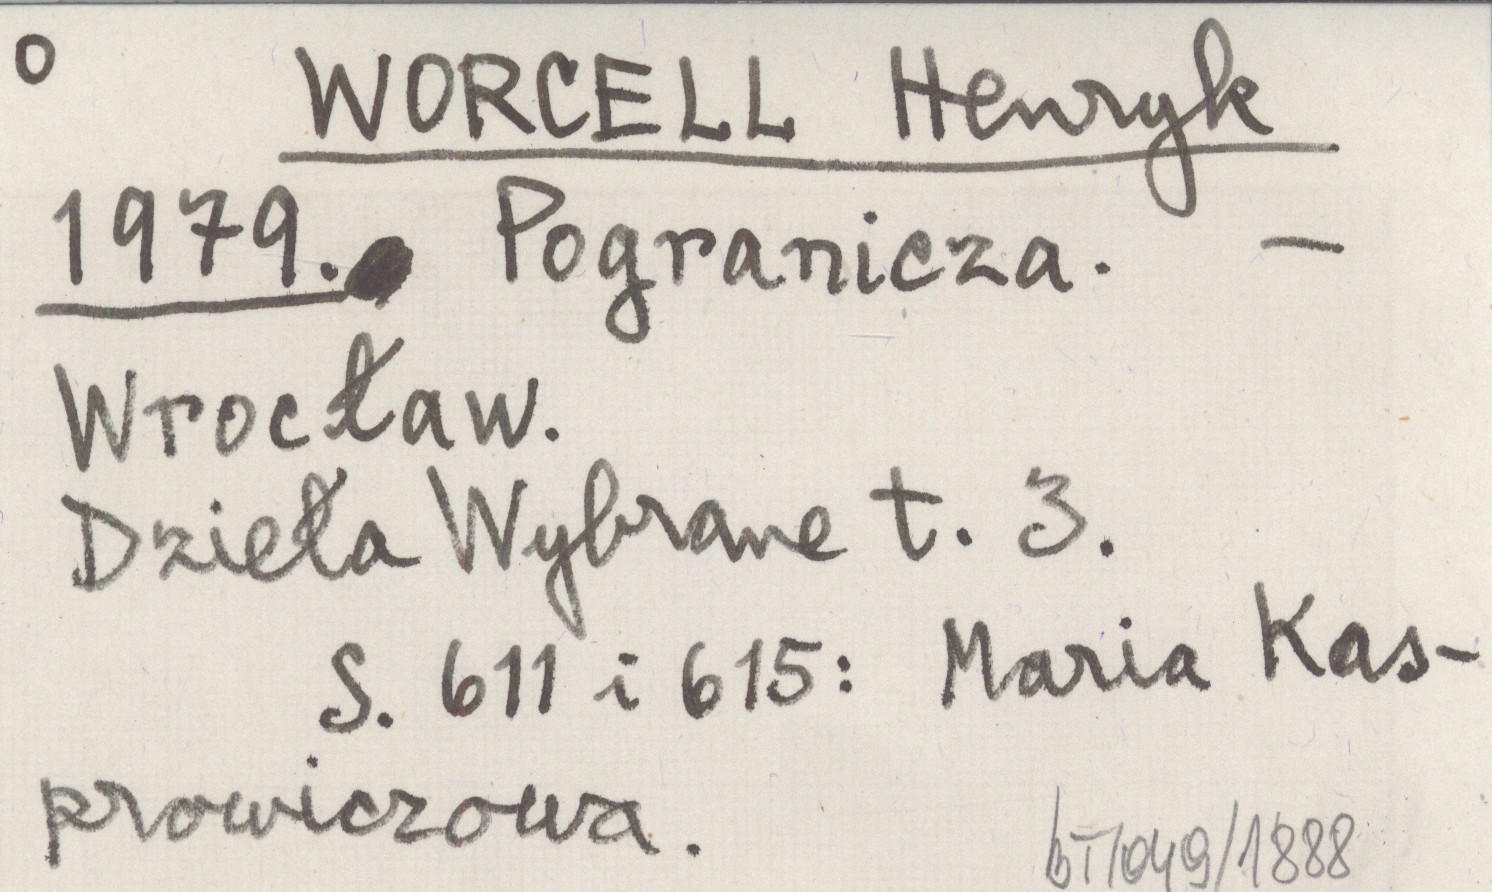 o WORCELL Henryk
1979. Pogranicza. —
Wrocław.
Dzieła Wybrane t. 3.
S. 611 i 615: Maria Kas-
prowiczowa.
bT/049/1888